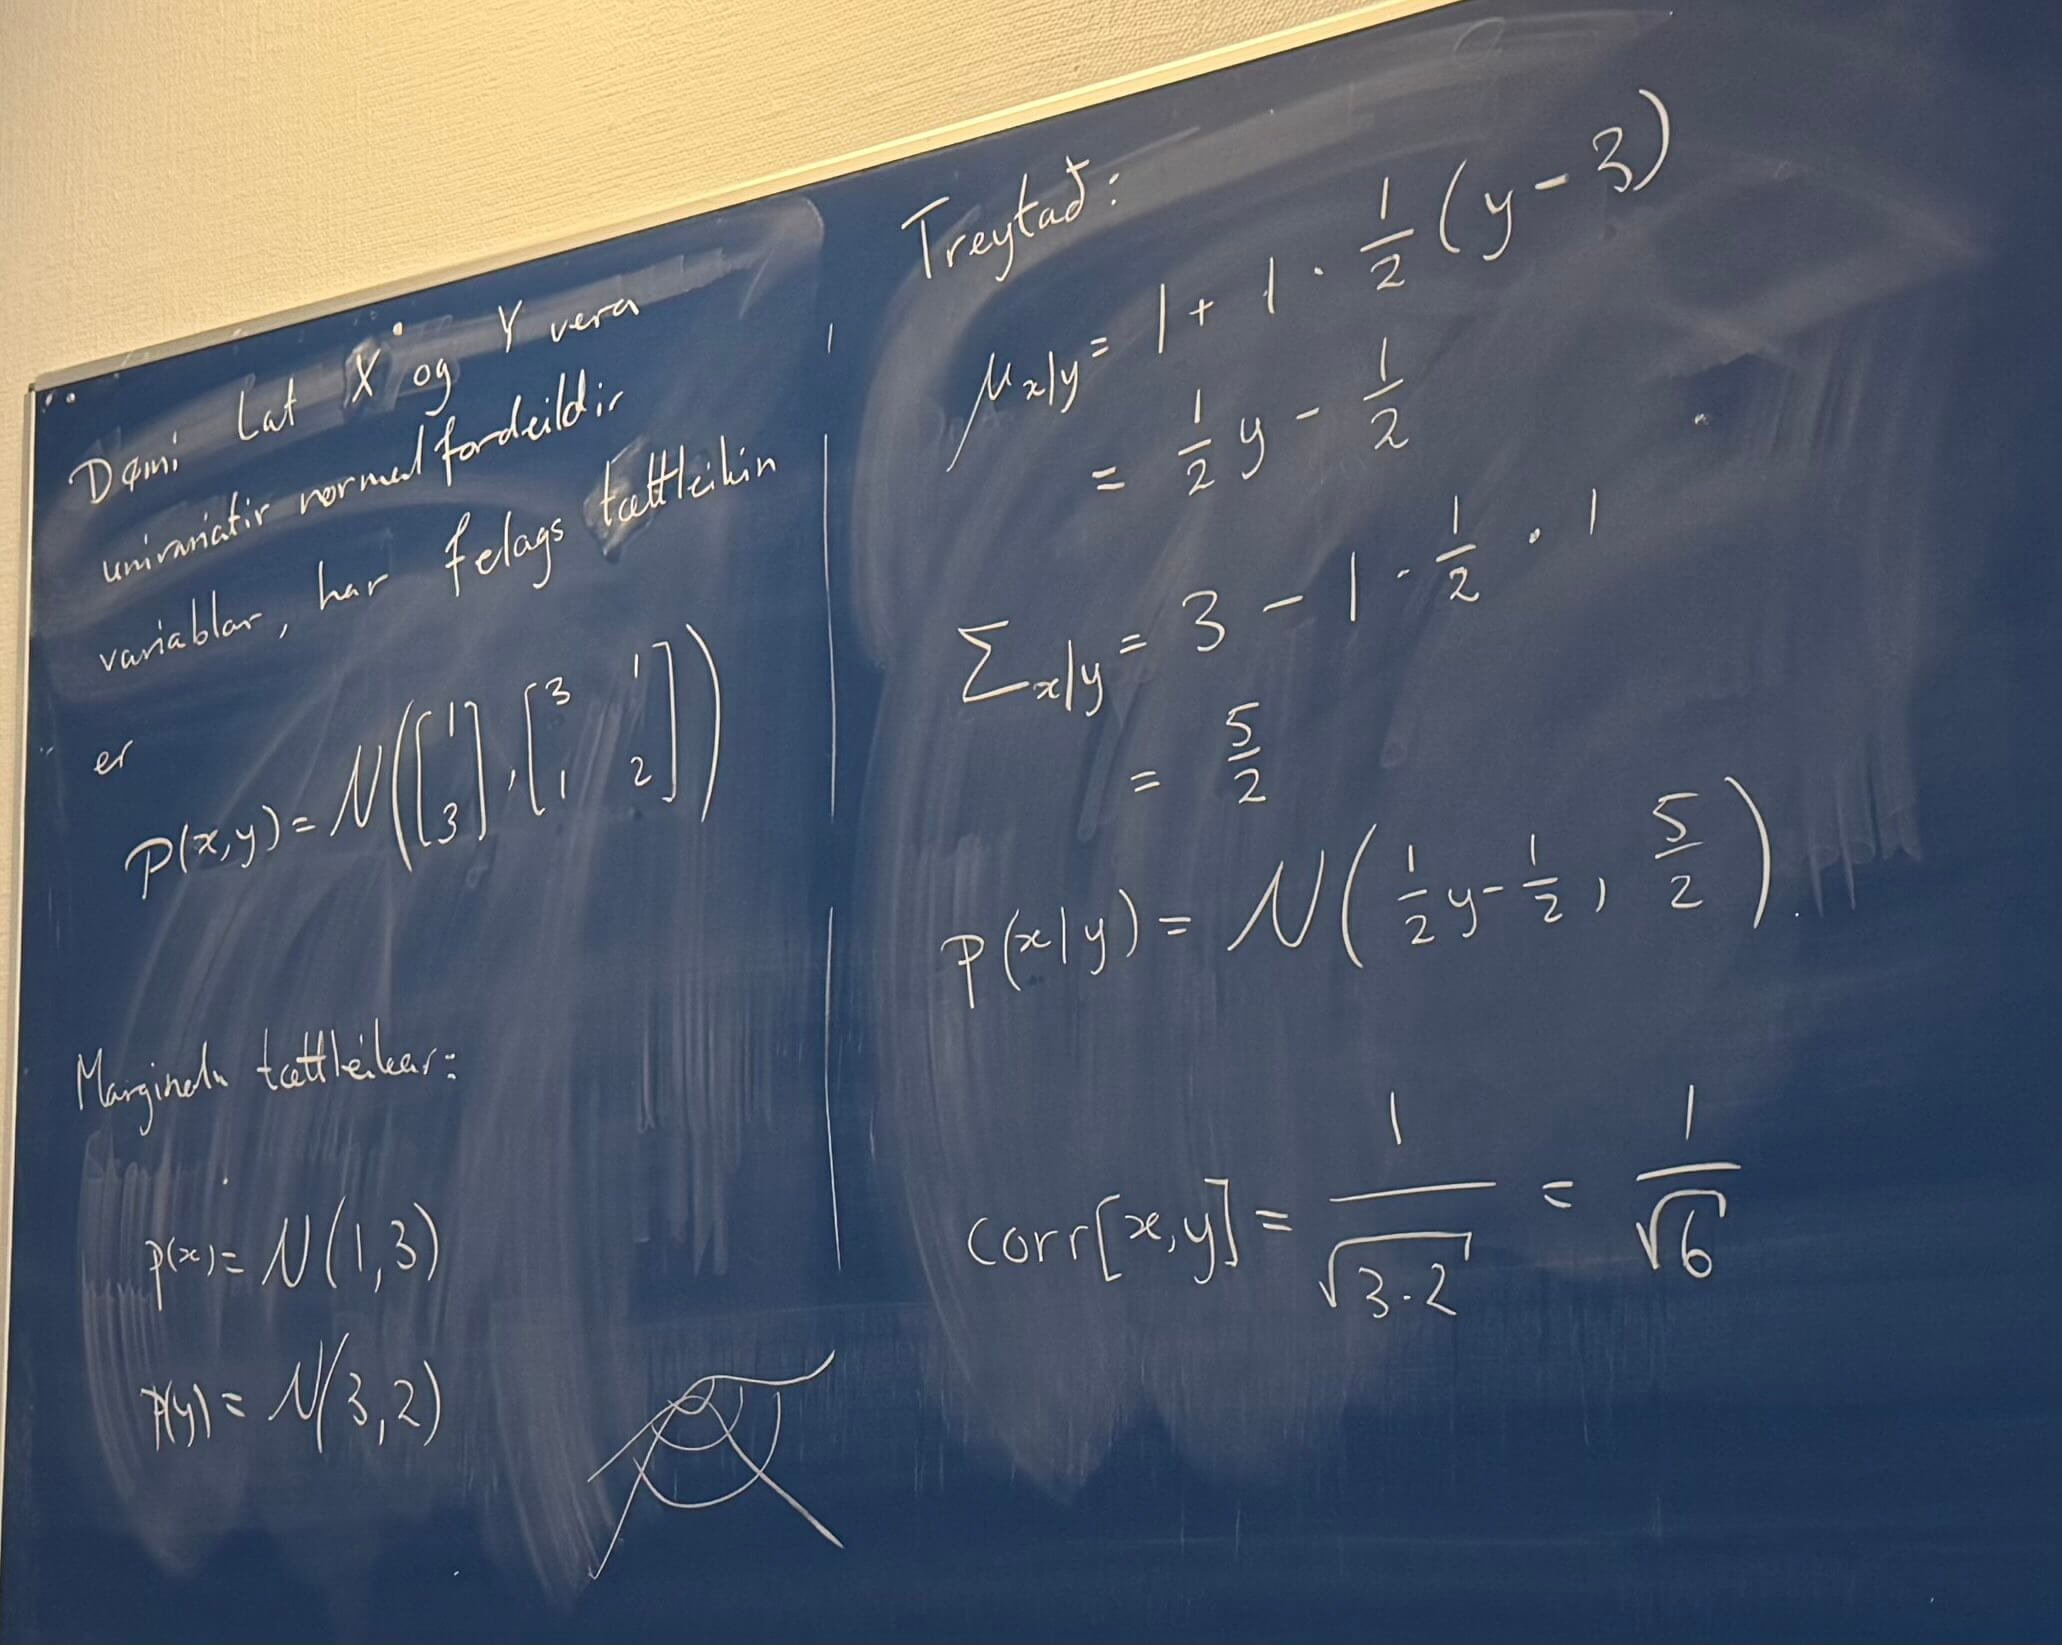 Dømi Lat X og Y vera
univariatir normal fordeildir
variablar, har felags tættleikin
er
P(x,y) = N([1 3], [3 1 1 2])
Marginalu tættleikar:
p(x) = N(1,3)
P(y) = N(3,2)
Treytað:
μ_{x|y} = 1 + 1 · 1/2 (y - 3)
= 1/2 y - 1/2
Σ_{x|y} = 3 - 1 · 1/2 · 1
= 5/2
P(x|y) = N(1/2 y - 1/2, 5/2).
corr[x,y] = 1/√(3·2) = 1/√6